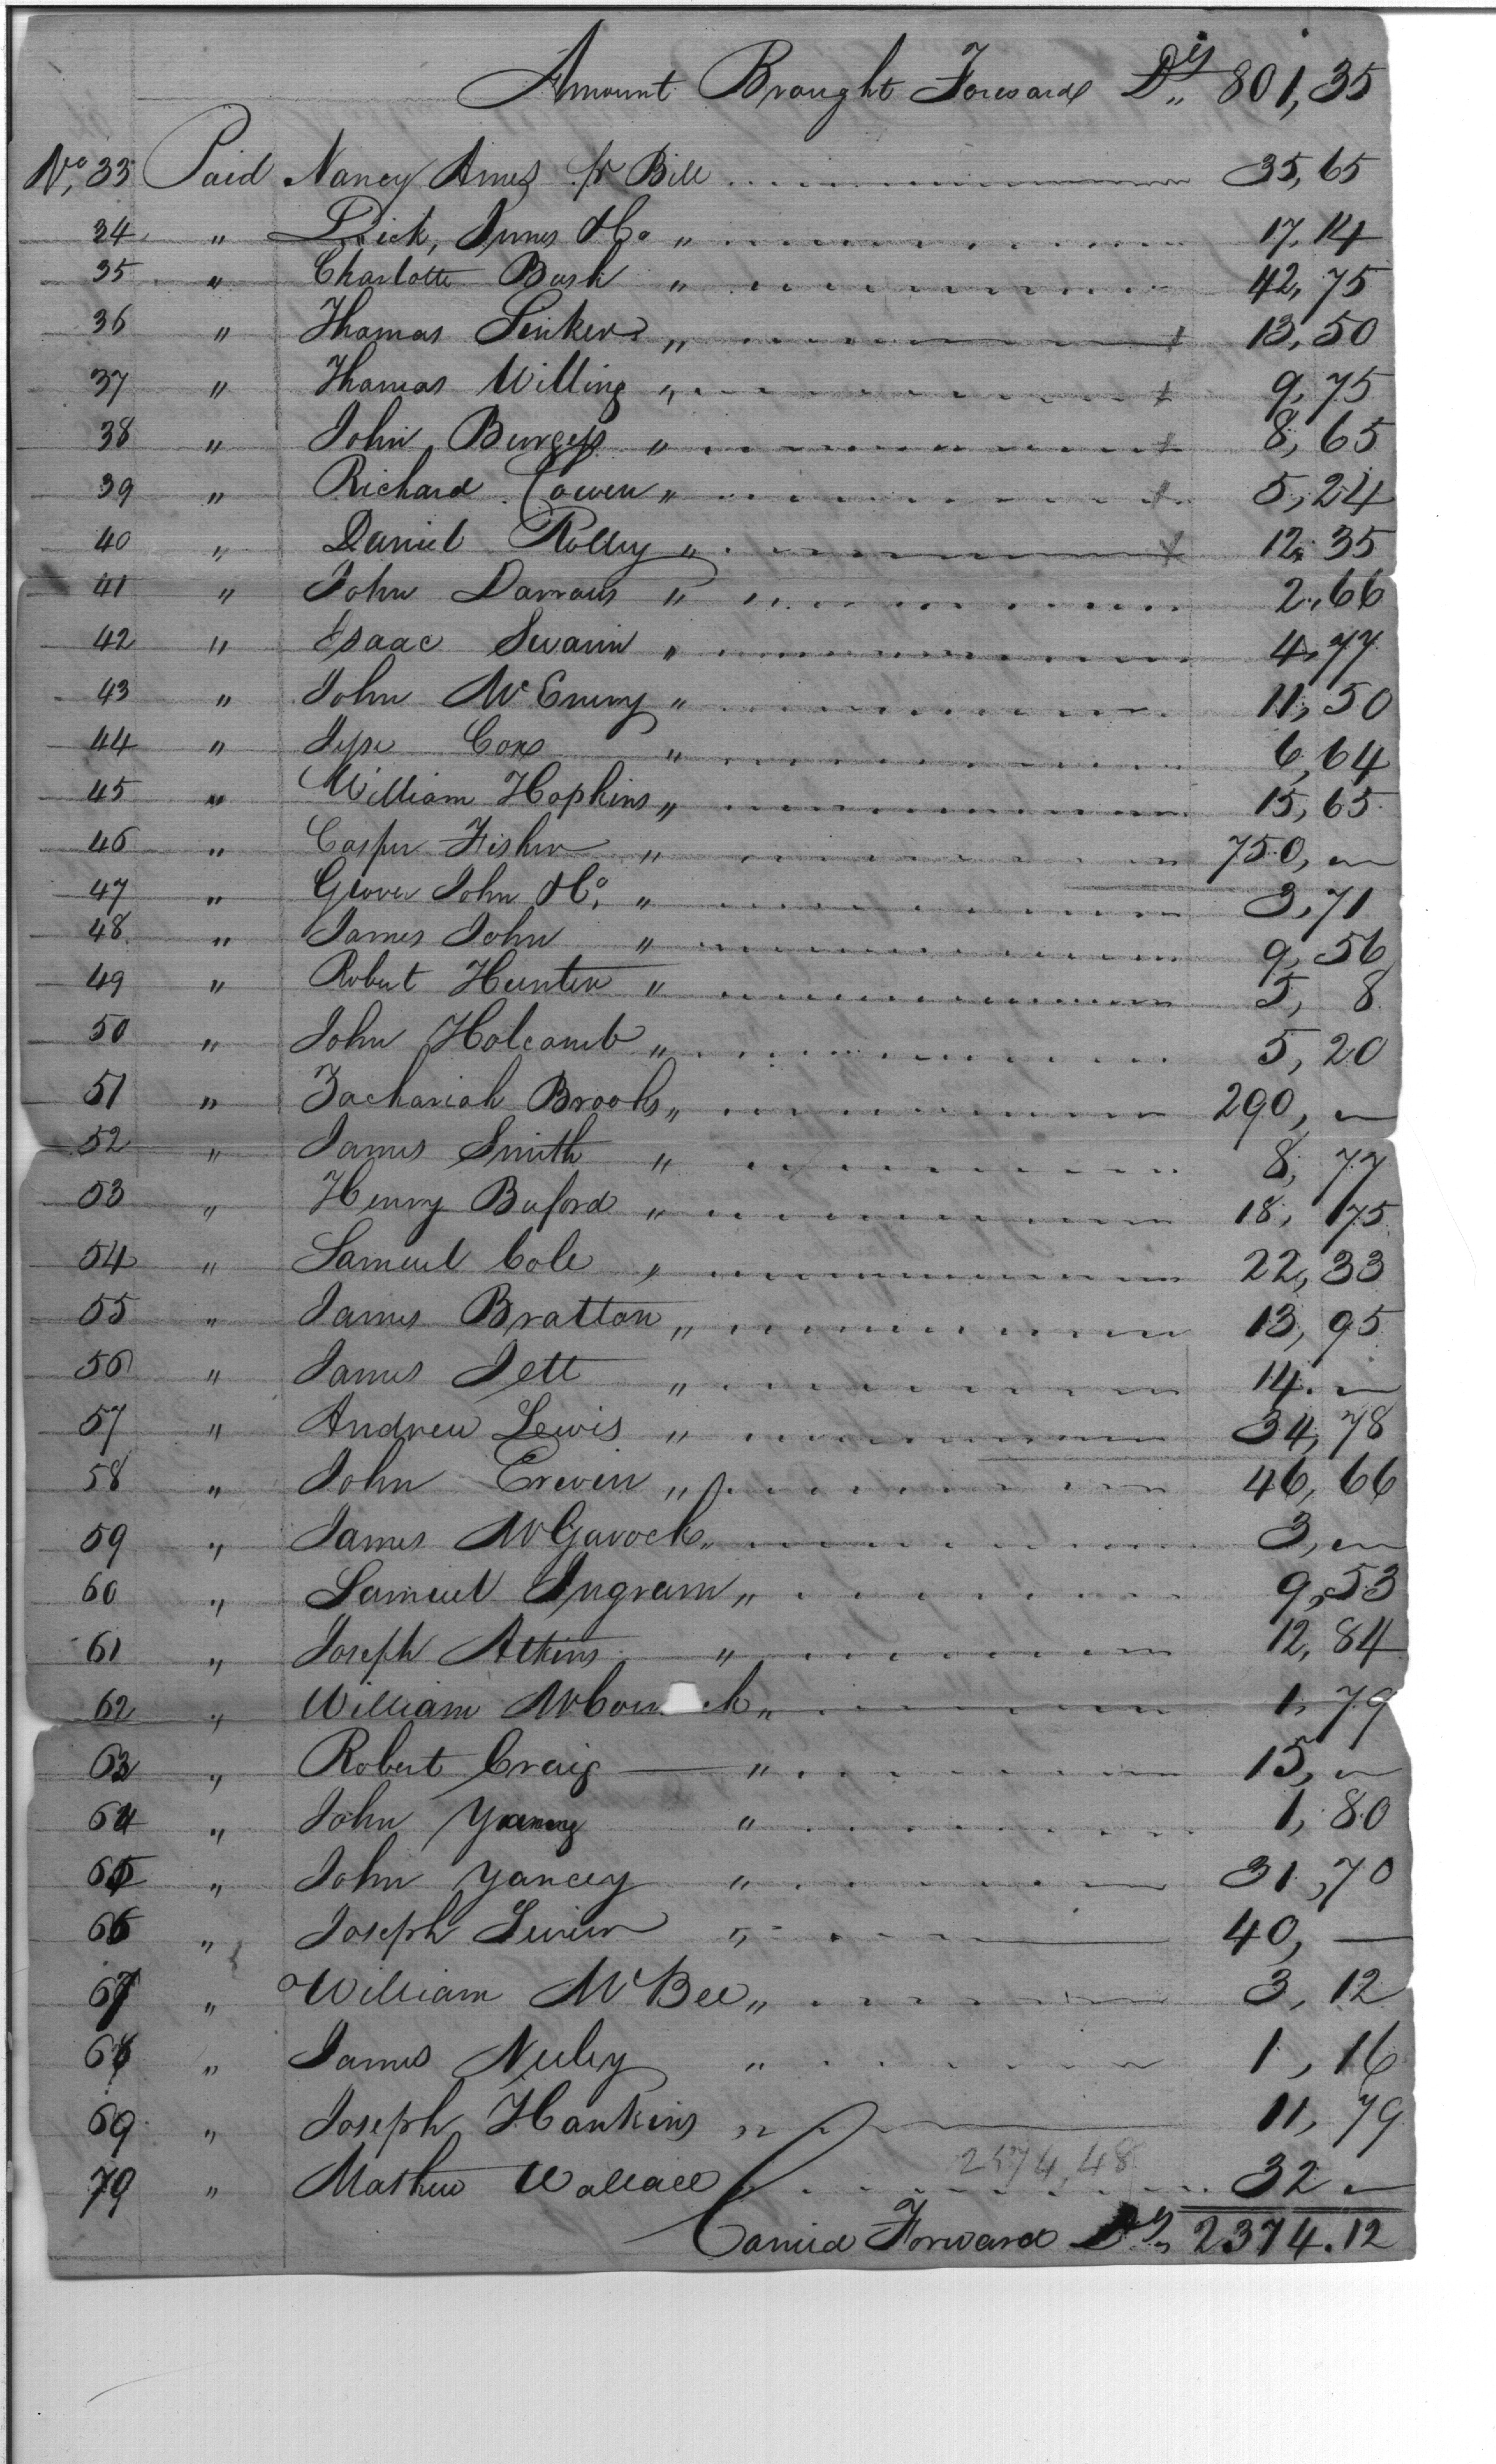 Amount Brought Forward D,, 801,35
No. 33 Paid Nancy Ames pr Bill 35,65
34 " Dick, James & Co " 17,14
35 " Charlotte Bush " 42,75
36 " Thomas " 13,50
37 " Thomas Willing " 9,75
38 " John Burgess " 8,65
39 " Richard Cowen " 5,24
40 " Daniel " 12,35
41 " John " 2,66
42 " Isaac Swann " 4,77
43 " John " 11,50
44 " Jesse Cox " 6,64
45 " William Hopkins " 15,65
46 " Casper Fisher " 750,
47 " John & Co. " 3,71
48 " James John " 9,56
49 " Robert Hunter " 5, 8
50 " John Holcomb " 5,20
51 " Zachariah Brooks " 290,
52 " James Smith " 8,77
53 " Henry Buford " 18,175
54 " Samuel Cole " 22,33
55 " James Bratton " 13,95
56 " James Jett " 14.
57 " Andrew Lewis " 34,78
58 " John Erwin " 46,66
59 " James McGavock " 3,
60 " Samuel Ingram " 9,53
61 " Joseph Atkins " 12,84
62 " William " 1,79
63 " Robert Craig " 15,
64 " John " 1,80
65 " John Yancey " 31,70
66 " Joseph " 40, —
67 " William McBee " 3,12
68 " James Neeley " 1,16
69 " Joseph Hankins " 11,79
2374,48
79 " Mathew Wallace 32
Carried Forward 2374.12